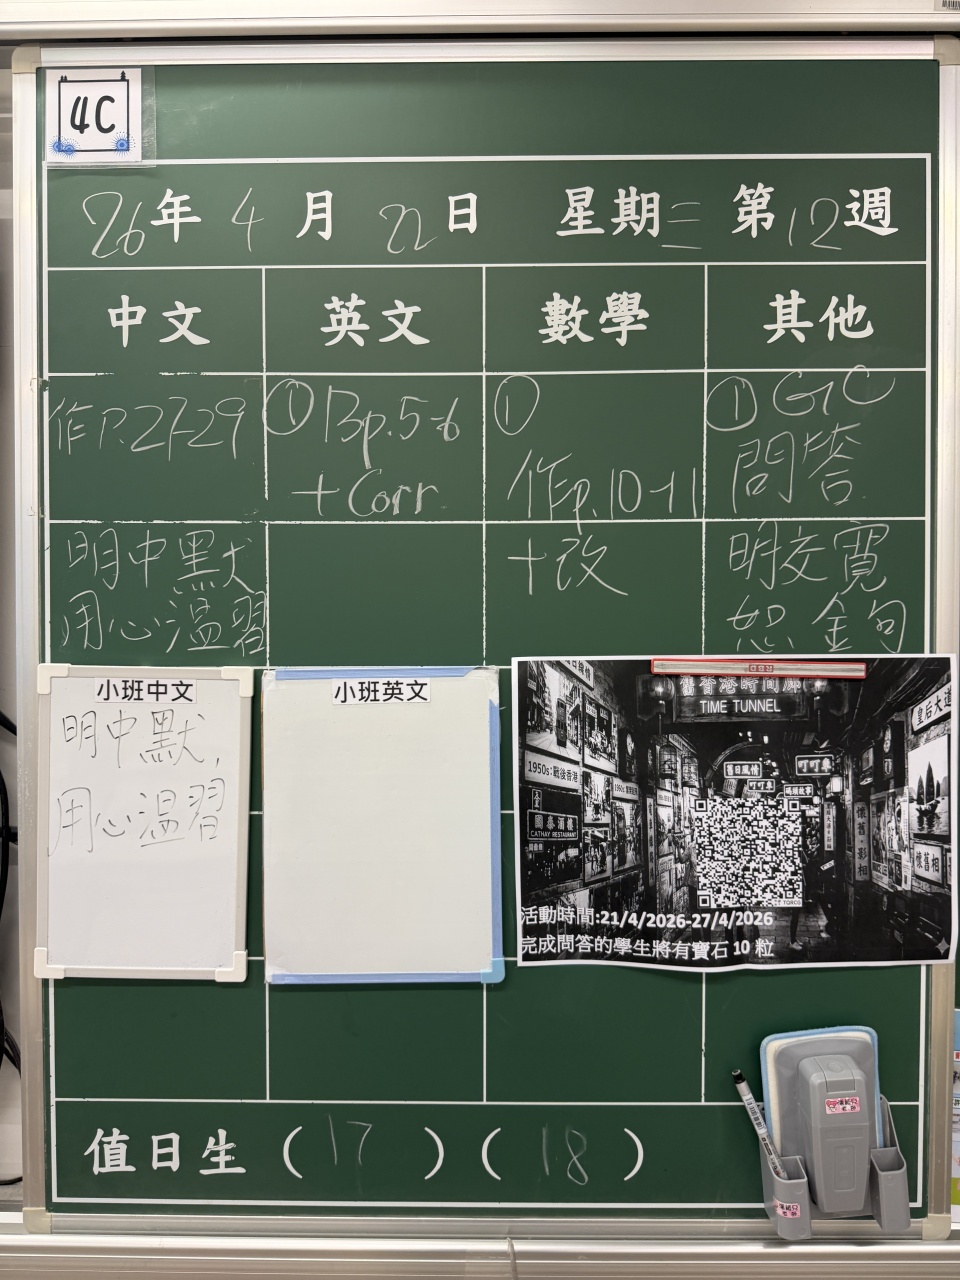 4C
26年4月22日 星期三 第12週
中文 英文 數學 其他
作P.27-29
明中默
用心溫習
①Bp.5-6
+Corr.
①
作p.10-11
+改
①GC
問答
明交寬
恕金句
小班中文
明中默,
用心溫習
小班英文
舊香港時間廊
TIME TUNNEL
皇后大道
1950s:戰後香港
舊日風情
叮叮車
叮叮車
國泰酒樓
CATHAY RESTAURANT
懷舊·影相
懷舊相
活動時間:21/4/2026-27/4/2026
完成問答的學生將有寶石10粒
值日生(17)(18)